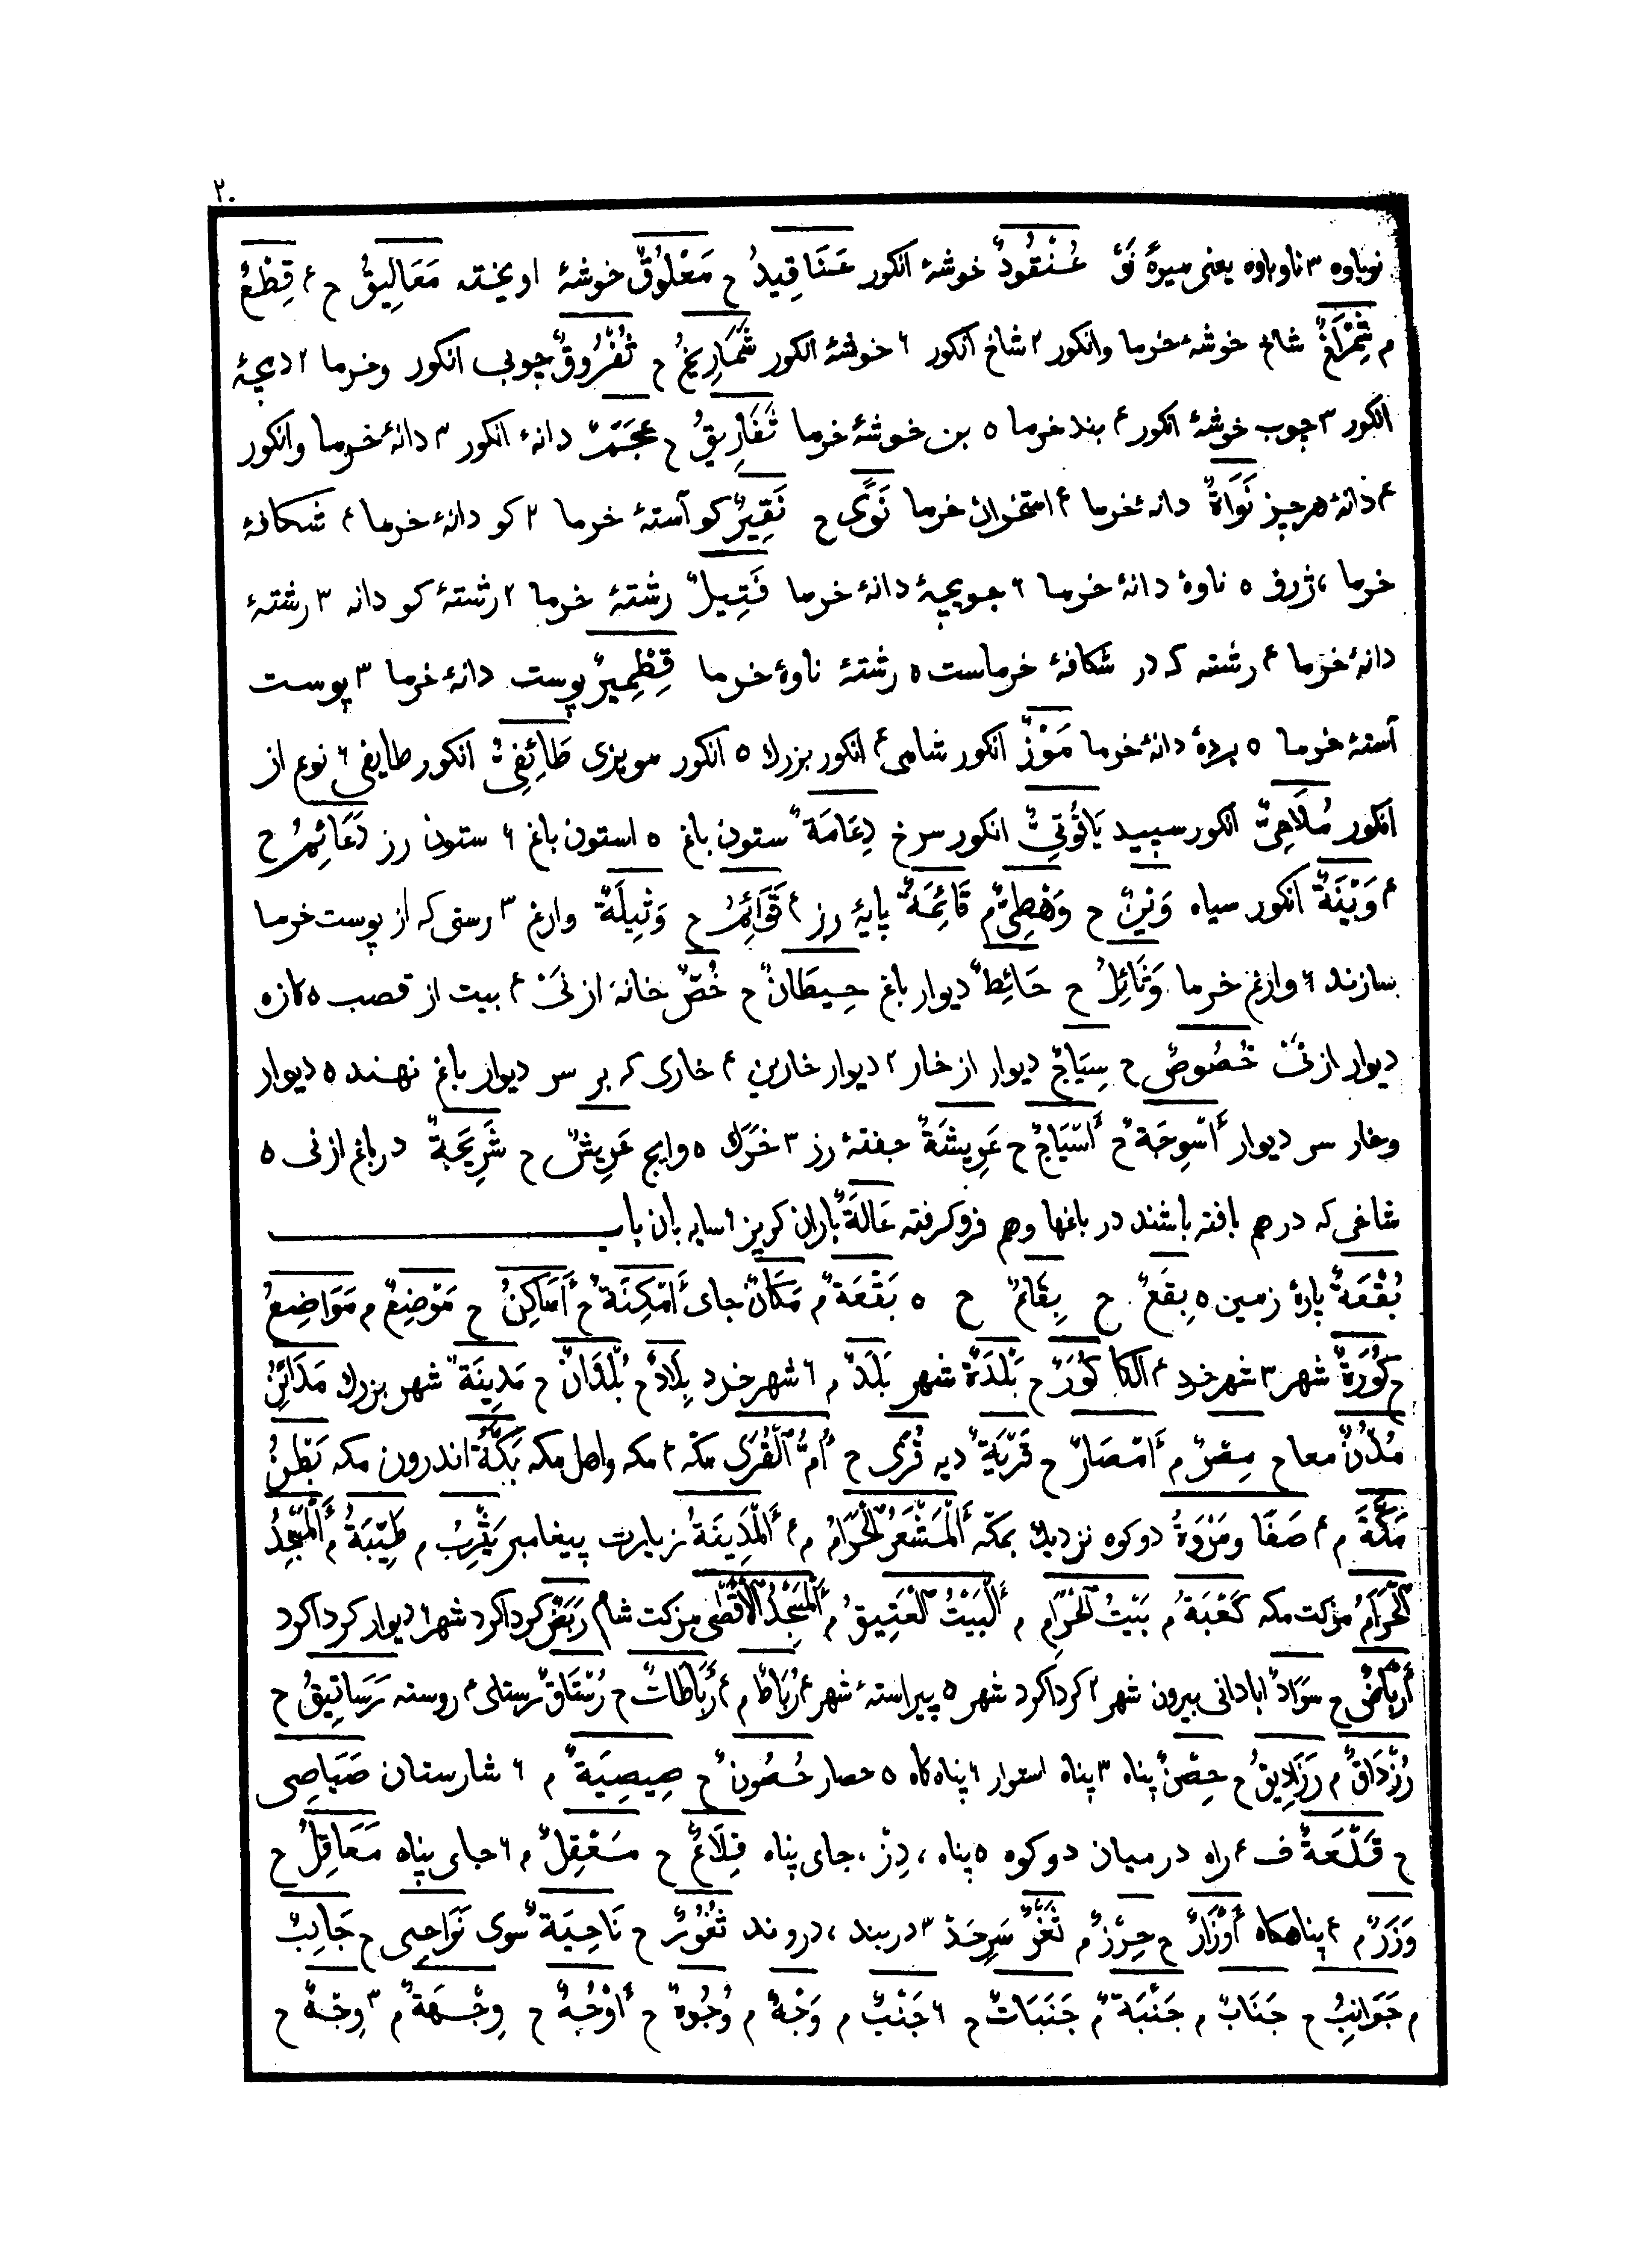 ٢٠
نوباوه ٣ ناوباوه يعنى ميوهٔ نَوْ عُنْقُودٌ خوشهٔ انكور عَنَاقِيدُ ح مَعْلُوقٌ خوشهٔ اويخته مَعَالِيقُ ح ۴ قِطْعٌ
م شِمْرَاخٌ شاخ خوشهٔ خرما وانكور ٢ شاخ انكور ۶ خوشهٔ انكور شَمَارِيخُ ح ثُفْرُوقٌ چوبى انكور وخرما ٢ دبچهٔ
انكور ٣ چوب خوشهٔ انكور ۴ بند خرما ۵ بن خوشهٔ خرما ثَفَارِيقُ ح عَجَمٌ دانهٔ انكور ٣ دانهٔ خرما وانكور
۴ دانهٔ هرچيز نَوَاةٌ دانهٔ خرما ۴ استخوان خرما نَوًى ح نَقِيرٌ كو آستهٔ خرما ٢ كو دانهٔ خرما ۴ شكافهٔ
خرما ، ژرف ۵ ناوهٔ دانهٔ خرما ۶ جويچهٔ دانهٔ خرما فَتِيلٌ رشتهٔ خرما ٢ رشتهٔ كو دانه ٣ رشتهٔ
دانهٔ خرما ۴ رشته كه در شكافهٔ خرماست ۵ رشتهٔ ناوهٔ خرما قِطْمِيرٌ پوست دانهٔ خرما ٣ پوست
آستهٔ خرما ۵ پردهٔ دانهٔ خرما مَوْزٌ انكور شامى ۴ انكور بزرك ۵ انكور مويزى طَائِفِىٌّ انكور طايفى ۶ نوع از
انكور مُلَاحِىٌّ انكور سپيد يَاقُوتِىٌّ انكور سرخ دِعَامَةٌ ستون باغ ۵ استون باغ ۶ ستون رز دَعَائِمُ ح
۴ وَيْنَةٌ انكور سياه وَيْنٌ ح وَهْطِىٌّ م قَائِمَةٌ پايهٔ رز ۴ قَوَائِمُ ح وَثِيلَةٌ وارغ ٣ رسنى كه از پوست خرما
سازند ۶ وارغ خرما وَثَائِلُ ح حَائِطٌ ديوار باغ حِيطَانٌ ح خُصٌّ خانهٔ از نَىْ ۴ بيت از قصب ۵ كازه
ديوار از نَىْ خُصُوصٌ ح سِيَاجٌ ديوار از خار ٢ ديوار خاربن ۴ خارى كه بر سر ديوار باغ نهند ۵ ديوار
وخار سر ديوار أَسْوِجَةٌ ح أَسْيَاجٌ ح عَرِيشَةٌ جفتهٔ رز ٣ خَرَك ۵ وايج عَرِيشٌ ح شَرِيجَةٌ در باغ از نى ۵
شاخى كه درهم بافته باشند در باغها وهم فروكرفته عَالَةٌ باران كريز ۶ سايه بان باب
بُقْعَةٌ پارهٔ زمين ۵ بِقَعٌ ح بِقَاعٌ ح ۵ بَقْعَةٌ م مَكَانٌ جاى أَمْكِنَةٌ ح أَمَاكِنُ ح مَوْضِعٌ م مَوَاضِعُ
ح كُورَةٌ شهر ٣ شهر خرد ۴ الكا كُوَرٌ ح بَلْدَةٌ شهر بَلَدٌ م ۶ شهر خرد بِلَادٌ ح بُلْدَانٌ ح مَدِينَةٌ شهر بزرك مَدَائِنُ
مُدُنٌ معا ح مِصْرٌ م أَمْصَارٌ ح قَرْيَةٌ ديه قُرًى ح أُمُّ الْقُرَى مكّه ۴ مكه واصل مكه بَكَّةُ اندرون مكه بَطْنُ
مَكَّةَ م ۴ صَفَا ومَرْوَةُ دوكوه نزديك بمكّه أَلْمَشْعَرُ الْحَرَامُ م ۴ أَلْمَدِينَةُ زيارت پيغامبر يَثْرِبُ م طَيْبَةُ م أَلْمَسْجِدُ
الْحَرَامُ مزكت مكه كَعْبَةُ م بَيْتُ الْحَرَامِ م أَلْبَيْتُ الْعَتِيقُ م أَلْمَسْجِدُ الْأَقْصَى مزكت شام رَبَضٌ كرداكرد شهر ۶ ديوار كرداكرد
أَرْبَاضٌ ح سَوَادٌ ابادانى بيرون شهر ٢ كرداكرد شهر ۵ پيراستهٔ شهر ۴ رُبَاطٌ م ۴ رُبَاطَاتٌ ح رُسْتَاقٌ رستاى ۴ روسته رَسَاتِيقُ ح
رُزْدَاقٌ م رَزَادِيقُ ح حِصْنٌ پناه ٣ پناه استوار ۶ پناه كاه ۵ حصار حُصُونٌ ح صِيصِيَةٌ م ۶ شارستان صَيَاصِى
ح قَلْعَةٌ ف ۴ راه درميان دوكوه ۵ پناه ، دِزْ ، جاى پناه قِلَاعٌ ح مَعْقِلٌ م ۶ جاى پناه مَعَاقِلُ ح
وَزَرٌ م ۴ پناهكاه أَوْزَارٌ ح حِرْزٌ م ثَغْرٌ سَرحَدْ ٣ دربند ، دروند ثُغُورٌ ح نَاحِيَةٌ سوى نَوَاحِى ح جَانِبٌ
م جَوَانِبُ ح جَنَابٌ م جَنْبَةٌ م جَنَبَاتٌ ح ۶ جَنْبٌ م وَجْهٌ م وُجُوهٌ ح أَوْجُهٌ ح وِجْهَةٌ م ٣ وِجْهٌ ح